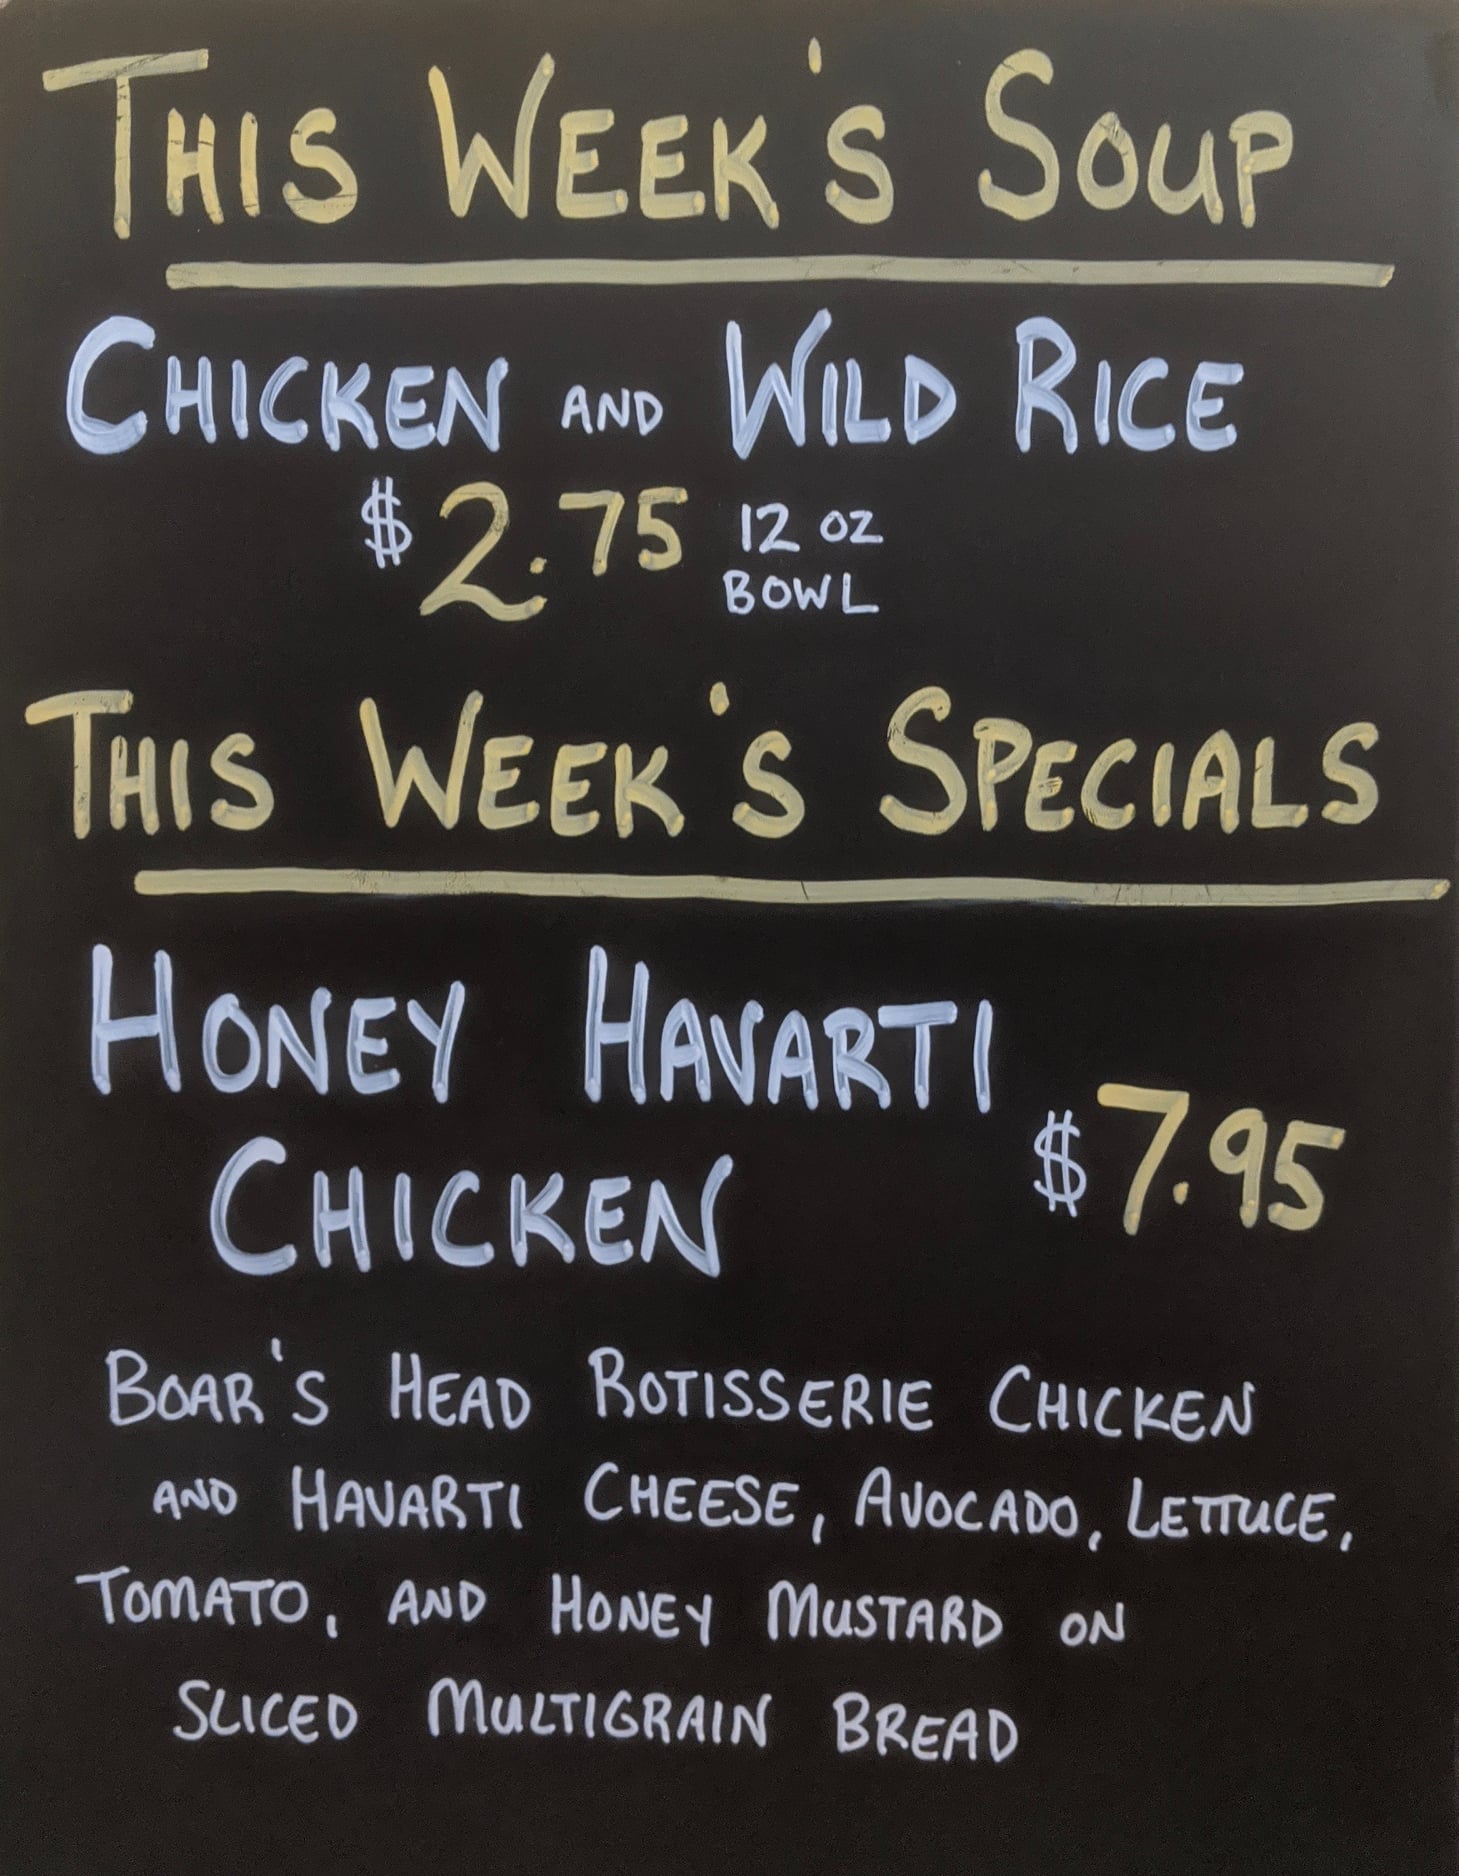 THIS WEEK'S SOUP
CHICKEN AND WILD RICE
$2.75 12 OZ
BOWL
THIS WEEK'S SPECIALS
HONEY HAVARTI
CHICKEN
$7.95
BOAR'S HEAD ROTISSERIE CHICKEN
AND HAVARTI CHEESE, AVOCADO, LETTUCE,
TOMATO, AND HONEY MUSTARD ON
SLICED MULTIGRAIN BREAD